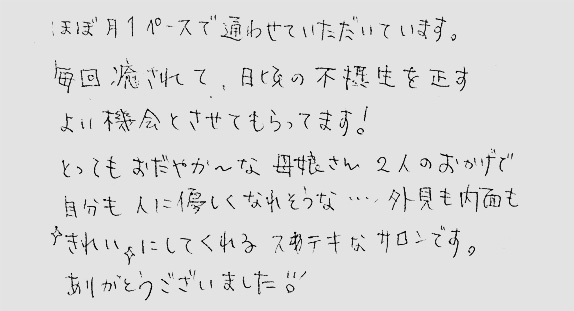 ほぼ月1ペースで通わせていただいています。
毎回癒されて、日頃の不摂生を正す
よい機会とさせてもらってます!
とってもおだやか〜な母娘さん2人のおかげで
自分も人に優しくなれそうな‥‥外見も内面も
☆きれい☆にしてくれるステキなサロンです。
ありがとうございました